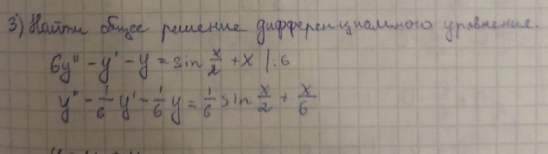 3) Найти общее решение дифференциального уравнения.
6y'' - y' - y = sin x/2 + x | :6
y'' - 1/6 y' - 1/6 y = 1/6 sin x/2 + x/6